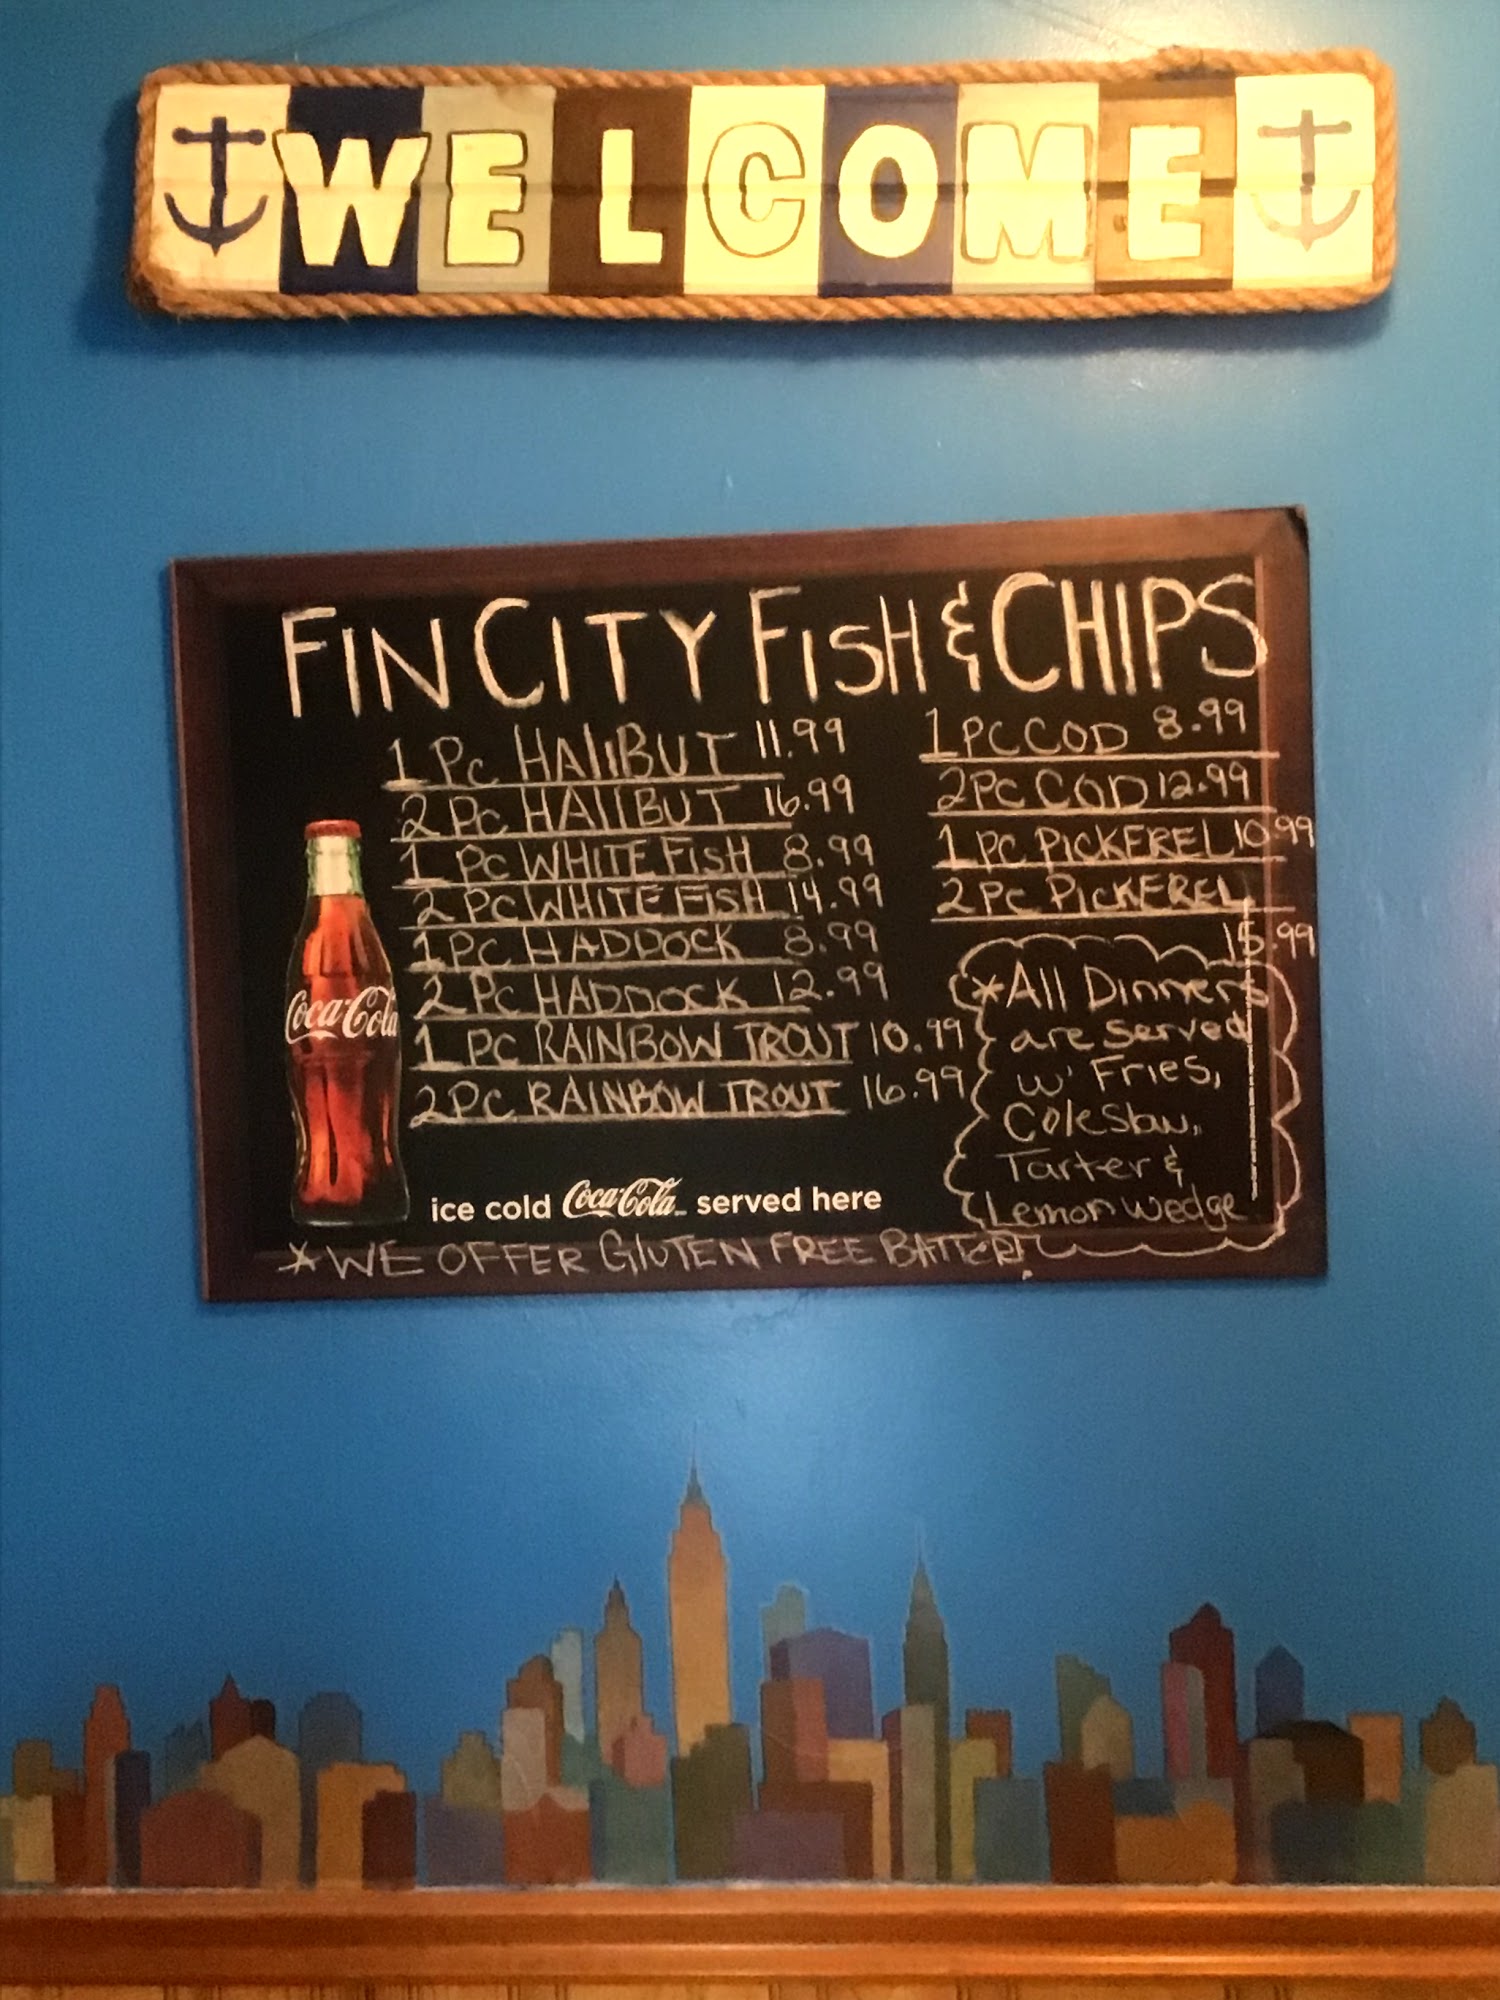 WELCOME
FIN CITY FISH & CHIPS
1 Pc HAlIBUT 11.99
2 Pc HAlIBUT 16.99
1 Pc WHITE FISH 8.99
2 Pc WHITE FISH 14.99
1 Pc HADDOCK 8.99
2 Pc HADDOCK 12.99
1 Pc RAINBOW TROUT 10.99
2 Pc RAINBOW TROUT 16.99
1 PC COD 8.99
2 PC COD 12.99
1 PC PICKEREL 10.99
2 PC PICKEREL
15.99
*All Dinners
are served
w' Fries,
Coleslaw,
Tarter &
Lemon wedge
Coca-Cola
ice cold Coca-Cola served here
*WE OFFER GlUTEN FREE BATTER!